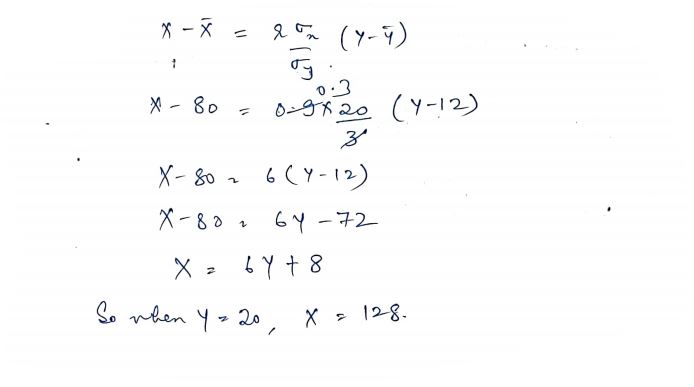 X - x̄ = r σx/σy (Y - ȳ)
X - 80 = 0.9 × 20/3 (Y - 12) 0.3
X - 80 = 6 (Y - 12)
X - 80 = 6Y - 72
X = 6Y + 8
So when Y = 20, X = 128.